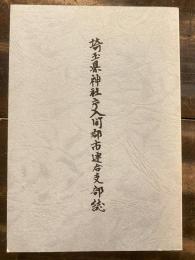 埼玉県神社庁入間郡市連合支部誌